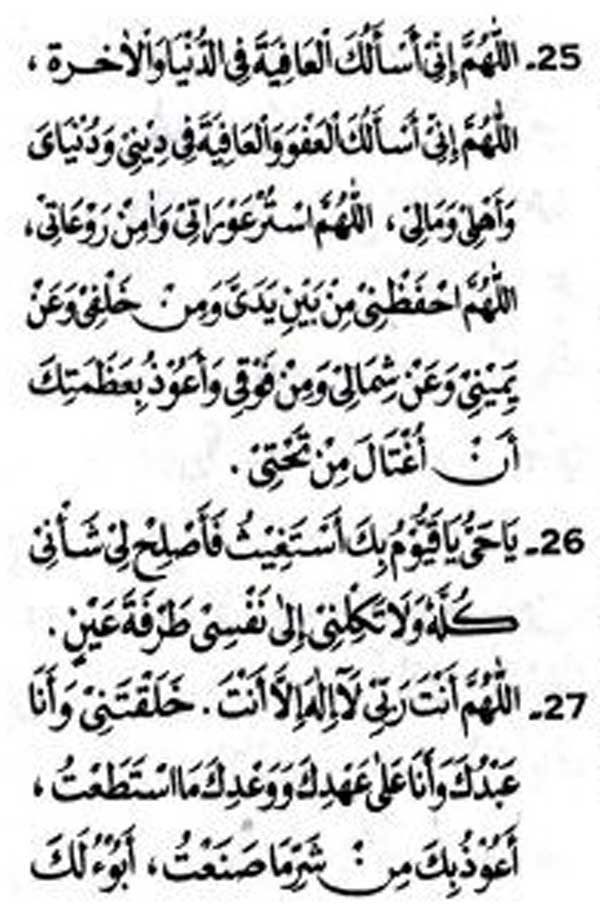 25ـ اَللّٰهُمَّ إِنِّيْ أَسْأَلُكَ الْعَافِيَةَ فِى الدُّنْيَا وَالْاٰخـرة ،
اَللّٰهُمَّ إِنِّيْ أَسْأَلُكَ الْعَفْوَ وَالْعَافِيَةَ فِى دِيْنِيْ وَدُنْيَاىَ
وَأَهْلِيْ وَمَالِيْ ، اَللّٰهُمَّ اسْتُرْ عَوْرَاتِيْ وَاٰمِنْ رَوْعَاتِيْ،
اَللّٰهُمَّ احْفَظْنِيْ مِنْ بَيْنِ يَدَىَّ وَمِنْ خَلْفِيْ وَعَنْ
يَمِيْنِيْ وَعَنْ شِمَالِيْ وَمِنْ فَوْقِى وَأَعُوْذُ بِعَظَمَتِكَ
أَنْ أُغْتَالَ مِنْ تَحْتِيْ .
26ـ يَا حَىُّ يَا قَيُّوْمُ بِكَ أَسْتَغِيْثُ فَأَصْلِحْ لِيْ شَأْنِيْ
كُلَّهٗ وَلَا تَكِلْنِيْ إِلىٰ نَفْسِيْ طَرْفَةَ عَيْنٍ .
27ـ اَللّٰهُمَّ أَنْتَ رَبِّيْ لَآ إِلٰهَ إِلَّا أَنْتَ . خَلَقْتَنِيْ وَأَنَا
عَبْدُكَ وَأَنَا عَلىٰ عَهْدِكَ وَوَعْدِكَ مَا اسْتَطَعْتُ ،
أَعُوْذُ بِكَ مِنْ شَرِّ مَا صَنَعْتُ ، أَبُوْءُ لَكَ